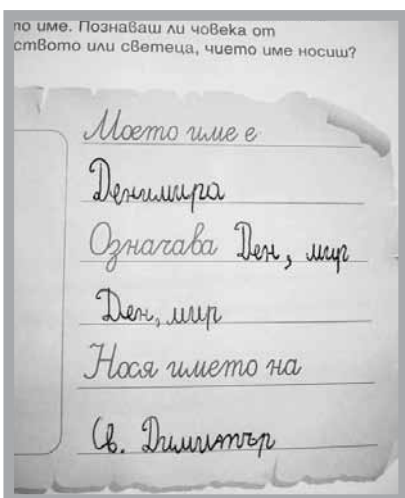 то име. Познаваш ли човека от
ството или светеца, чието име носиш?
Моето име е
Денимира
Означава Ден,
Ден, мир
Нося името на
Св. Димитър